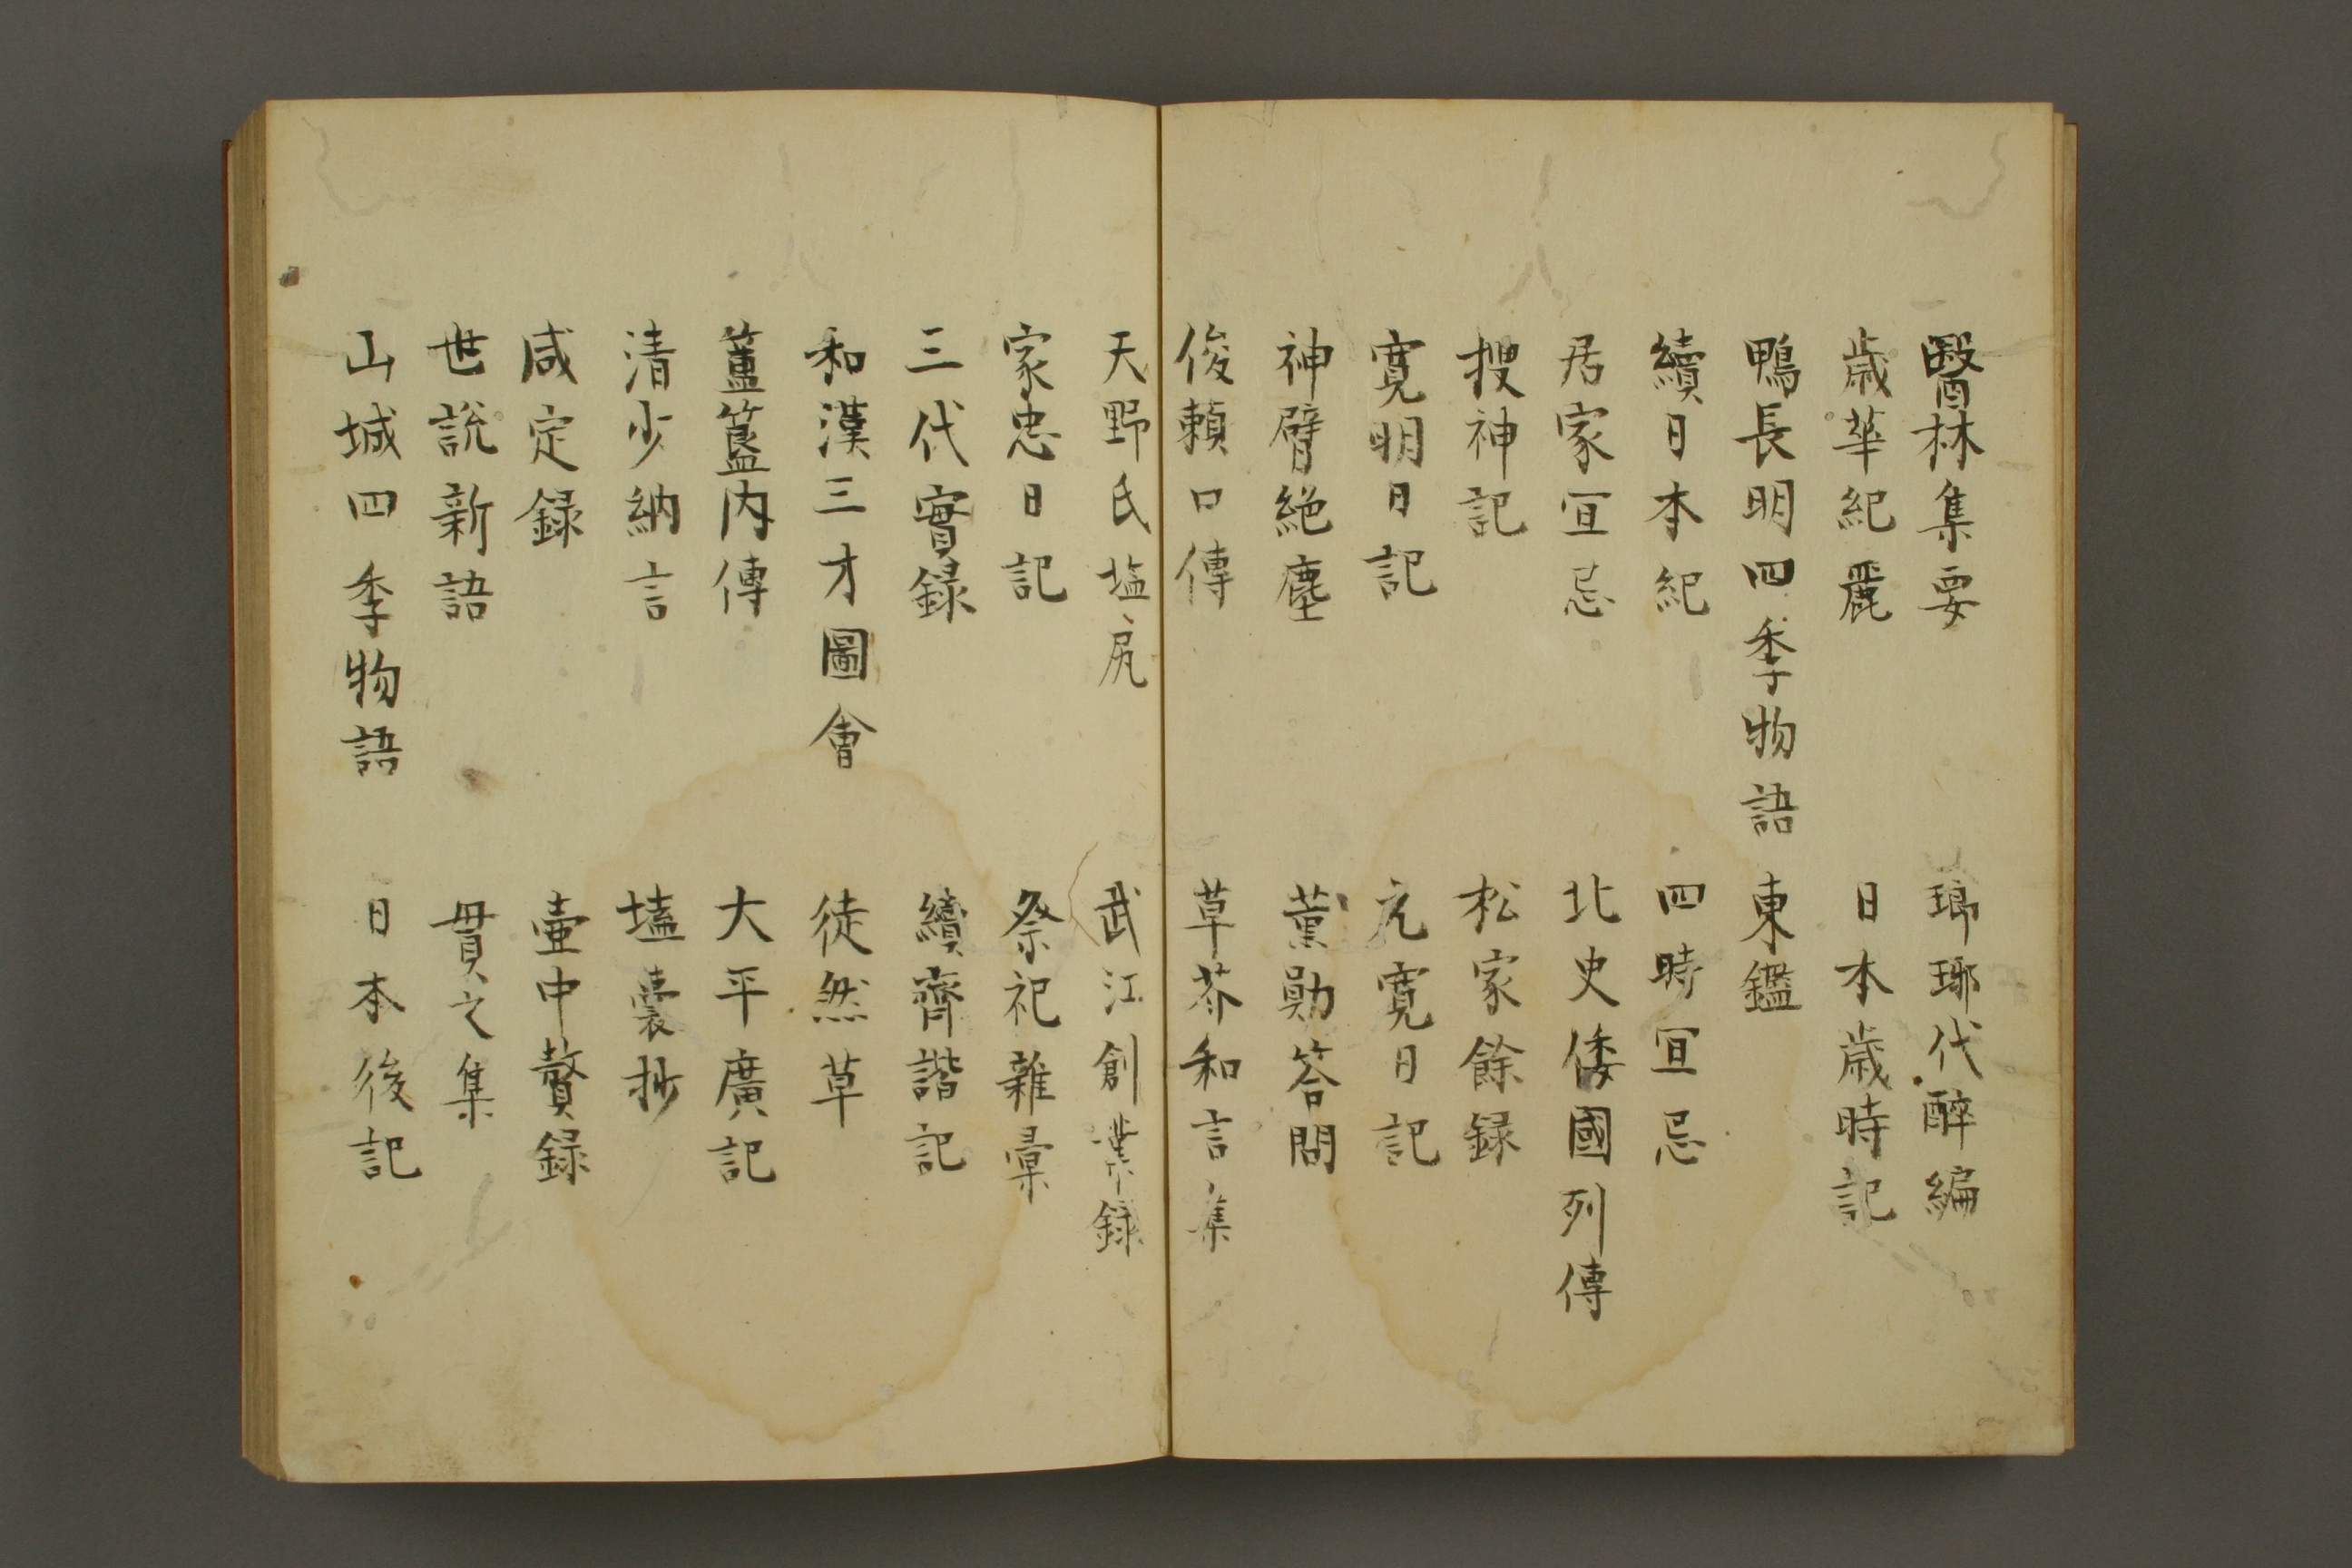 醫林集要　瑯琊代醉編
歳華紀麗　日本歳時記
鴨長明四季物語　東鑑
續日本紀　四時宜忌
居家宜忌　北史倭國列傳
搜神記　松家餘録
寛明日記　元寛日記
神臂絶塵　薫勛答問
俊頼口傳　草芥和言集
天野氏塩尻　武江創業録
家忠日記　祭祀雜彙
三代實録　續齊諧記
和漢三才圖會　徒然草
簠簋内傳　大平廣記
清少納言　壒囊抄
咸定録　壷中贅録
世説新語　貫之集
山城四季物語　日本後記